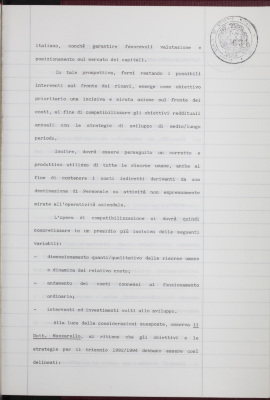 italiani, nonché garantire favorevoli valutazione e
posizionamento sul mercato dei capitali.
In tale prospettiva, fermi restando i possibili
interventi sul fronte dei ricavi, emerge come obiettivo
prioritario una incisiva e mirata azione sul fronte dei
costi, al fine di compatibilizzare gli obiettivi reddituali
annuali con le strategie di sviluppo di medio/lungo
periodo.
Inoltre, dovrà essere perseguito un corretto e
produttivo utilizzo di tutte le risorse umane, anche al
fine di contenere i costi indiretti derivanti da una
destinazione di Personale su attività non espressamente
mirate all'operatività aziendale.
L'opera di compatibilizzazione si dovrà quindi
concretizzare in un presidio più incisivo delle seguenti
variabili:
- dimensionamento quanti/qualitativo delle risorse umane
e dinamica del relativo costo,
- andamento dei costi connessi al funzionamento
ordinario;
- interventi ed investimenti volti allo sviluppo.
Alla luce delle considerazioni esposte, osserva il
Dott. si ritiene che gli obiettivi e le
strategie per il triennio 1992/1994 debbano essere così
delineati: